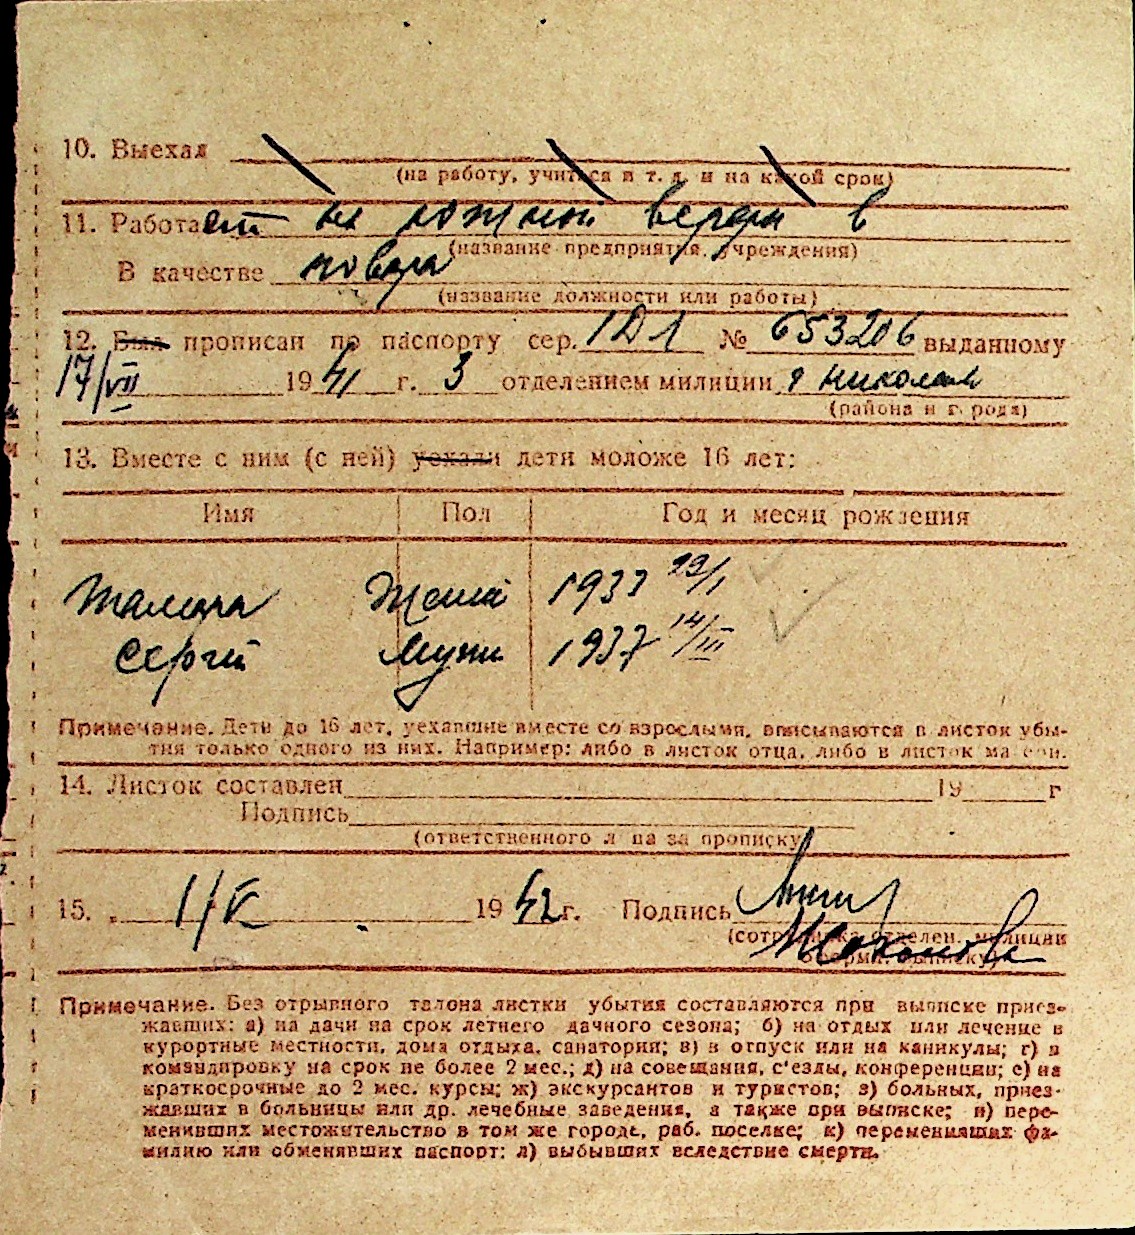 10. Выехал
(на работу, учиться и т. д. и на какой срок)
11. Работает на южной верфи в
(название предприятия, учреждения)
В качестве повара
(название должности или работы)
12. Был прописан по паспорту сер. IДЛ № 653206 выданному
17/VII 1941 г. 3 отделением милиции г Николаев
(района и города)
13. Вместе с ним (с ней) уехали дети моложе 16 лет:
Имя Пол Год и месяц рождения
Тамара Жен 1933 29/I
Сергей Муж 1937 14/III
Примечание. Дети до 16 лет, уехавшие вместе со взрослыми, вписываются в листок убы-
тия только одного из них. Например: либо в листок отца, либо в листок матери.
14. Листок составлен 19 г
Подпись
(ответственного лица за прописку)
15. 1/V 1942 г. Подпись
(сотрудника отделен. милиции
оформ. выписку)
Примечание. Без отрывного талона листки убытия составляются при выписке приез-
жавших: а) на дачи на срок летнего дачного сезона; б) на отдых или лечение в
курортные местности, дома отдыха, санатории; в) в отпуск или на каникулы; г) в
командировку на срок не более 2 мес.; д) на совещания, с'езды, конференции; е) на
краткосрочные до 2 мес. курсы; ж) экскурсантов и туристов; з) больных, приез-
жавших в больницы или др. лечебные заведения, а также при выписке; и) пере-
менивших местожительство в том же городе, раб. поселке; к) переменивших фа-
милию или обменявших паспорт; л) выбывших вследствие смерти.